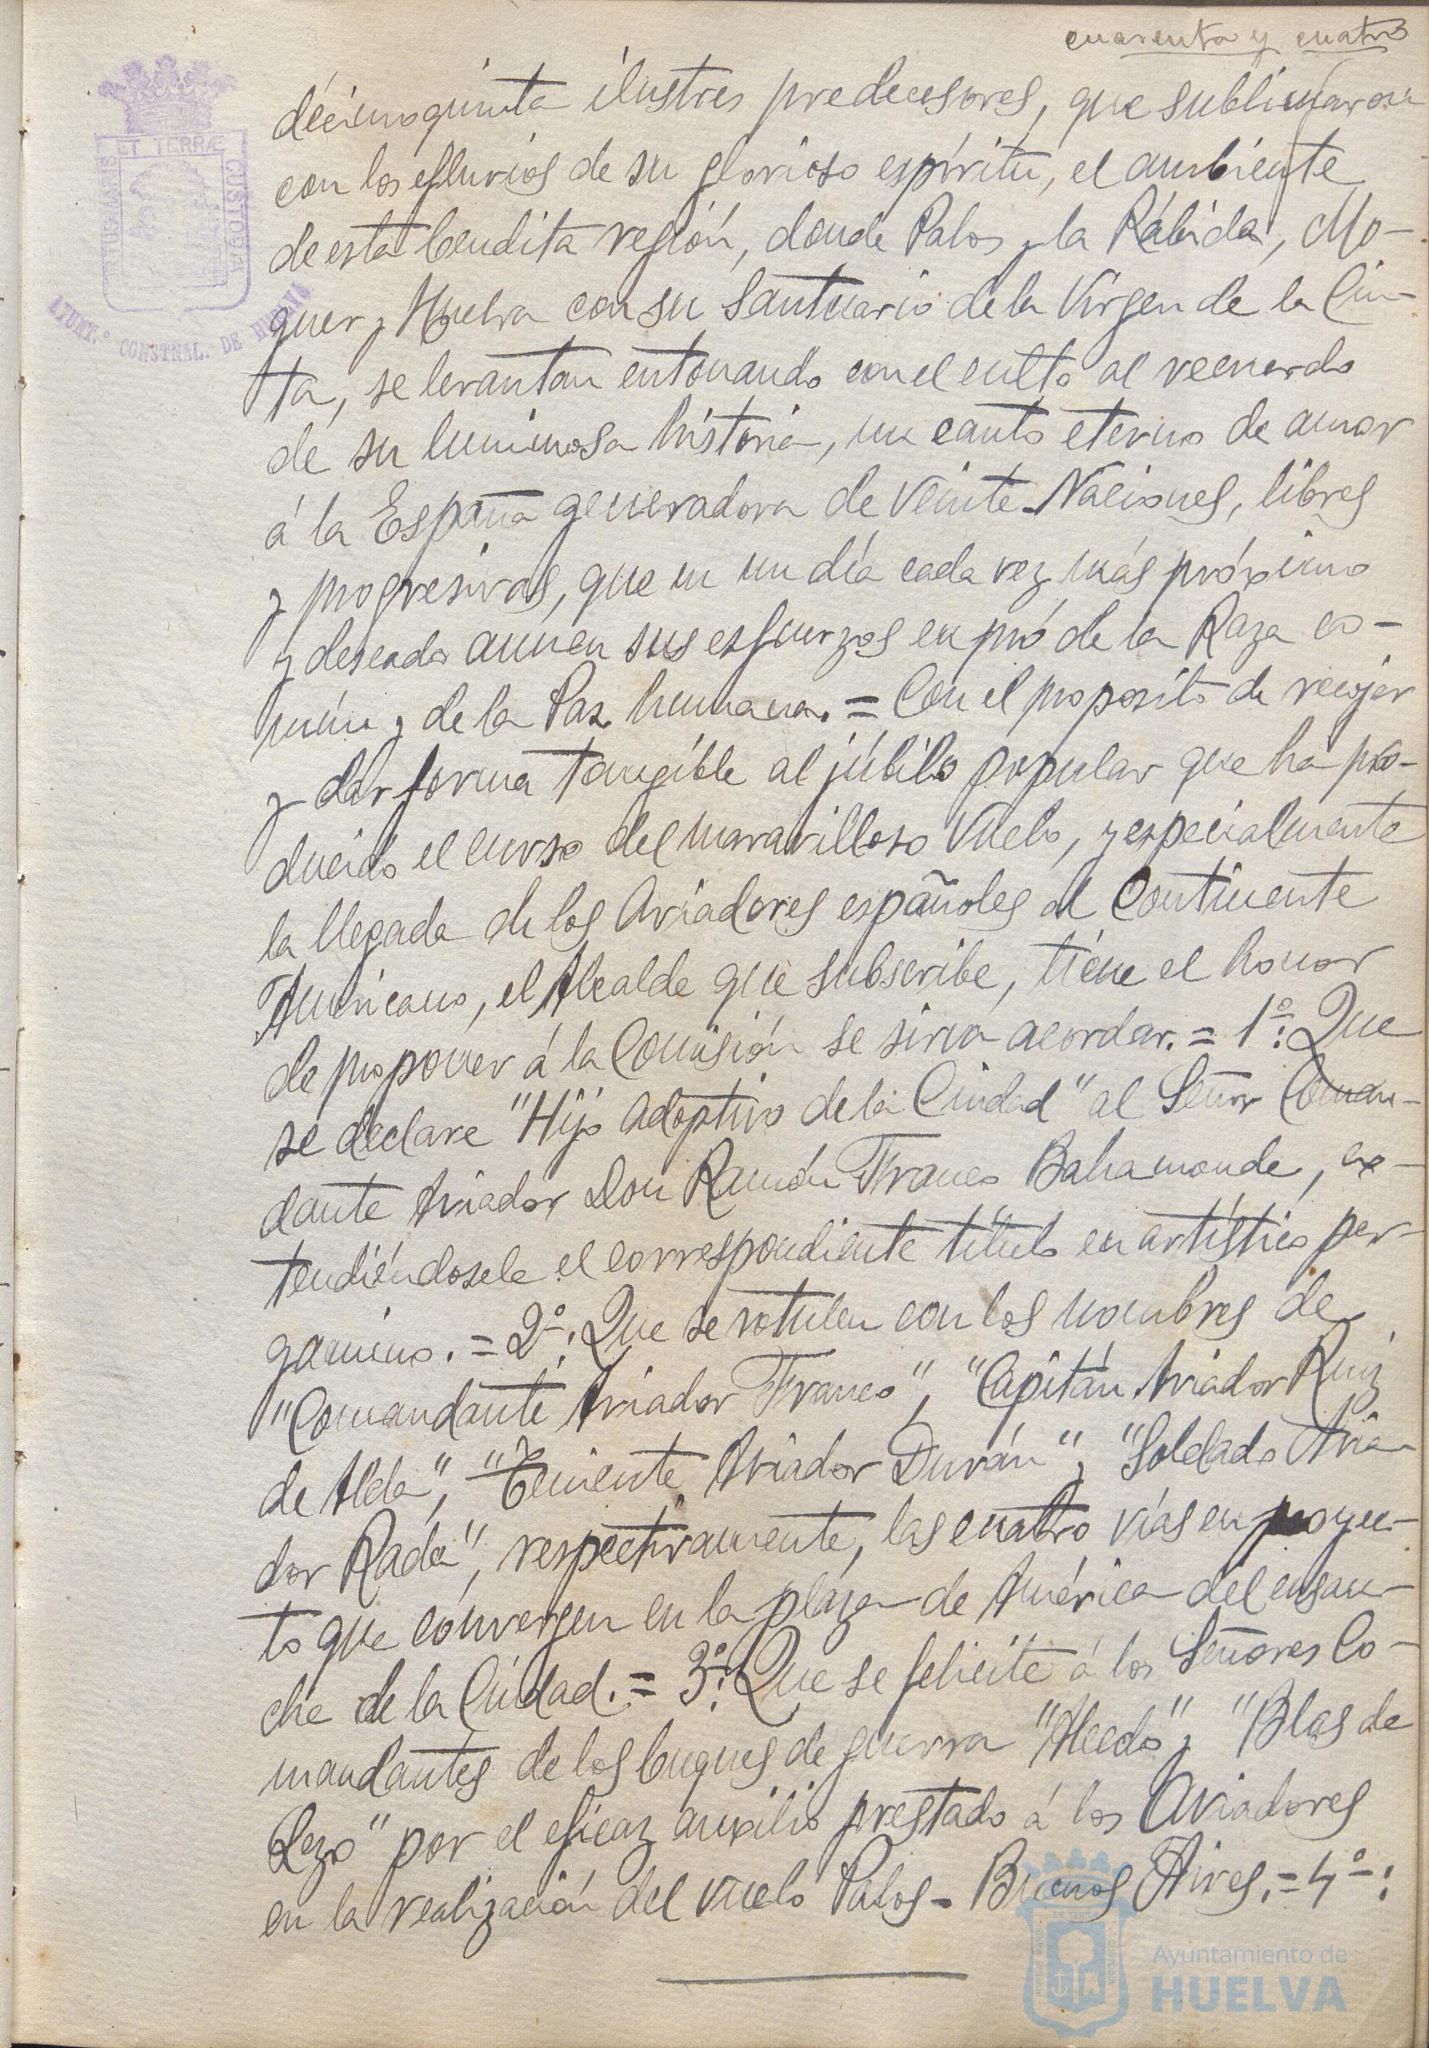 cuarenta y cuatro
PORTUS MARIS ET TERRÆ CUSTODIA
AYUNT.º CONSTNAL. DE HUELVA
décimoquinta ilustres predecesores, que sublimaron
con los efluvios de su glorioso espíritu, el ambiente
de esta bendita región, donde Palos y la Rábida, Mo-
guer y Huelva con su Santuario de la Virgen de la Cin-
ta, se levantan entonando con el culto al recuerdo
de su luminosa historia, un canto eterno de amor
á la España generadora de veinte Naciones, libres
y progresivas, que en un día cada vez más próximo
y deseado aunen sus esfuerzos en pró de la Raza co-
mún y de la Paz humana. = Con el proposito de recojer
y dar forma tangible al júbilo popular que ha pro-
ducido el curso del maravilloso vuelo, y especialmente
la llegada de los Aviadores españoles al Continente
Americano, el Alcalde que subscribe, tiene el honor
de proponer á la Comisión se sirva acordar. = 1º: Que
se declare "Hijo Adoptivo de la Ciudad" al Señor Coman-
dante Aviador Don Ramón Franco Bahamonde, ex-
tendiéndosele el correspondiente título en artístico per-
gamino. = 2º: Que se rotulen con los nombres de
"Comandante Aviador Franco", "Capitán Aviador Ruiz
de Alda", "Teniente Aviador Durán" y "Soldado Avia-
dor Rada", respectivamente, las cuatro vías en proyec-
to que convergen en la plaza de América del ensan-
che de la Ciudad. = 3º: Que se felicite á los Señores Co-
mandantes de los buques de guerra "Alcedo" y "Blas de
Lezo" por el eficaz auxilio prestado á los Aviadores
en la realización del vuelo Palos - Buenos Aires. = 4º:
Ayuntamiento de
HUELVA